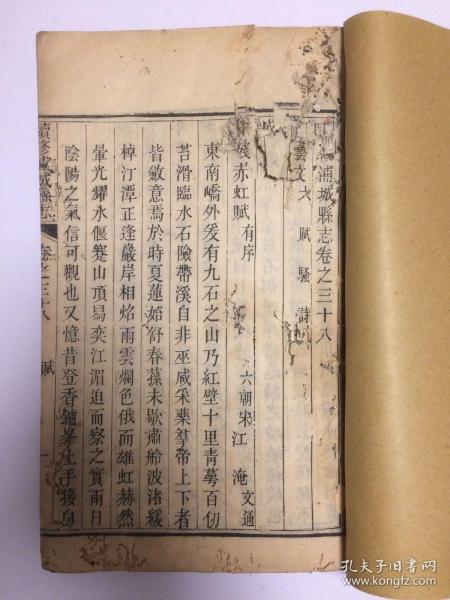 浦城縣志卷之三十八
藝文 賦 騷 詩
赤虹賦 有序 六朝宋 江淹 文通
東南嶠外爰有九石之山乃紅壁十里青萼百仞
苔滑臨水石險帶溪自非巫咸采藥羣帝上下者
皆斂意焉於時夏蓮始舒春蓀未歇肅舲波渚緩
棹汀潭正逢巖岸相焰雨雲爛色俄而雄虹赫然
暈光耀水偃蹇山頂舄奕江湄迫而察之實雨日
陰陽之氣信可觀也又憶昔登香鑪峯上手接白
續修浦城縣志 卷之三十八 賦 一
孔夫子旧书网
www.kongfz.com